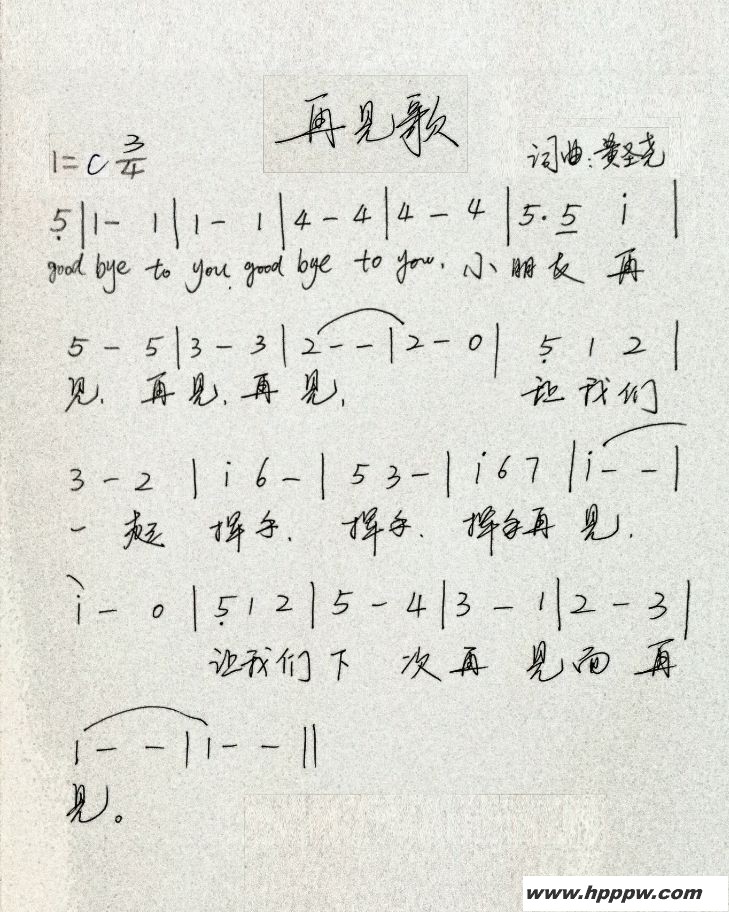 再见歌
1=C 3/4
词曲:黄圣尧
5̣ | 1 - 1 | 1 - 1 | 4 - 4 | 4 - 4 | 5· 5 i̇ |
good bye to you. good bye to you. 小 朋 友 再
5 - 5 | 3 - 3 | 2 - - | 2 - 0 | 5̣ 1 2 |
见. 再 见. 再 见. 让 我 们
3 - 2 | i̇ 6 - | 5 3 - | i̇ 6 7 | i̇ - - |
一 起 挥手. 挥手. 挥手再 见.
i̇ - 0 | 5̣ 1 2 | 5 - 4 | 3 - 1 | 2 - 3 |
让我们 下 次 再 见 面 再
1 - - | 1 - - ||
见。
www.hpppw.com